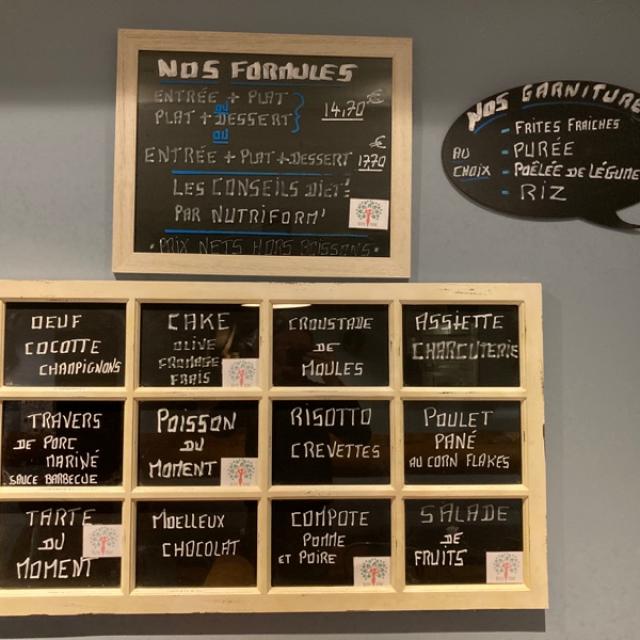 NOS FORMULES
ENTRÉE + PLAT
ou
PLAT + DESSERT
14,70 €
ou
ENTRÉE + PLAT + DESSERT 17,70 €
LES CONSEILS DIET:
PAR NUTRIFORM'
• PRIX NETS HORS BOISSONS •
NOS GARNITURE
AU CHOIX
- FRITES FRAICHES
- PURÉE
- POÊLÉE DE LÉGUME
- RIZ
OEUF
COCOTTE
CHAMPIGNONS
CAKE
OLIVE
FROMAGE
FRAIS
CROUSTADE
DE
MOULES
ASSIETTE
CHARCUTERIE
TRAVERS
DE PORC
MARINÉ
SAUCE BARBECUE
POISSON
DU
MOMENT
RISOTTO
CREVETTES
POULET
PANÉ
AU CORN FLAKES
TARTE
DU
MOMENT
MOELLEUX
CHOCOLAT
COMPOTE
POMME
ET POIRE
SALADE
DE
FRUITS